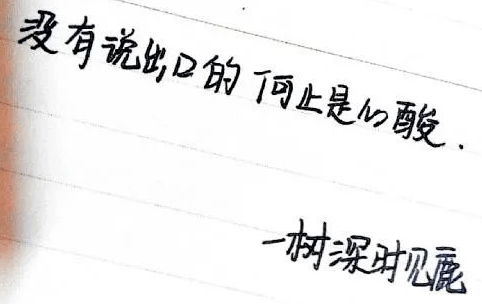 没有说出口的何止是心酸.
一树深时见鹿